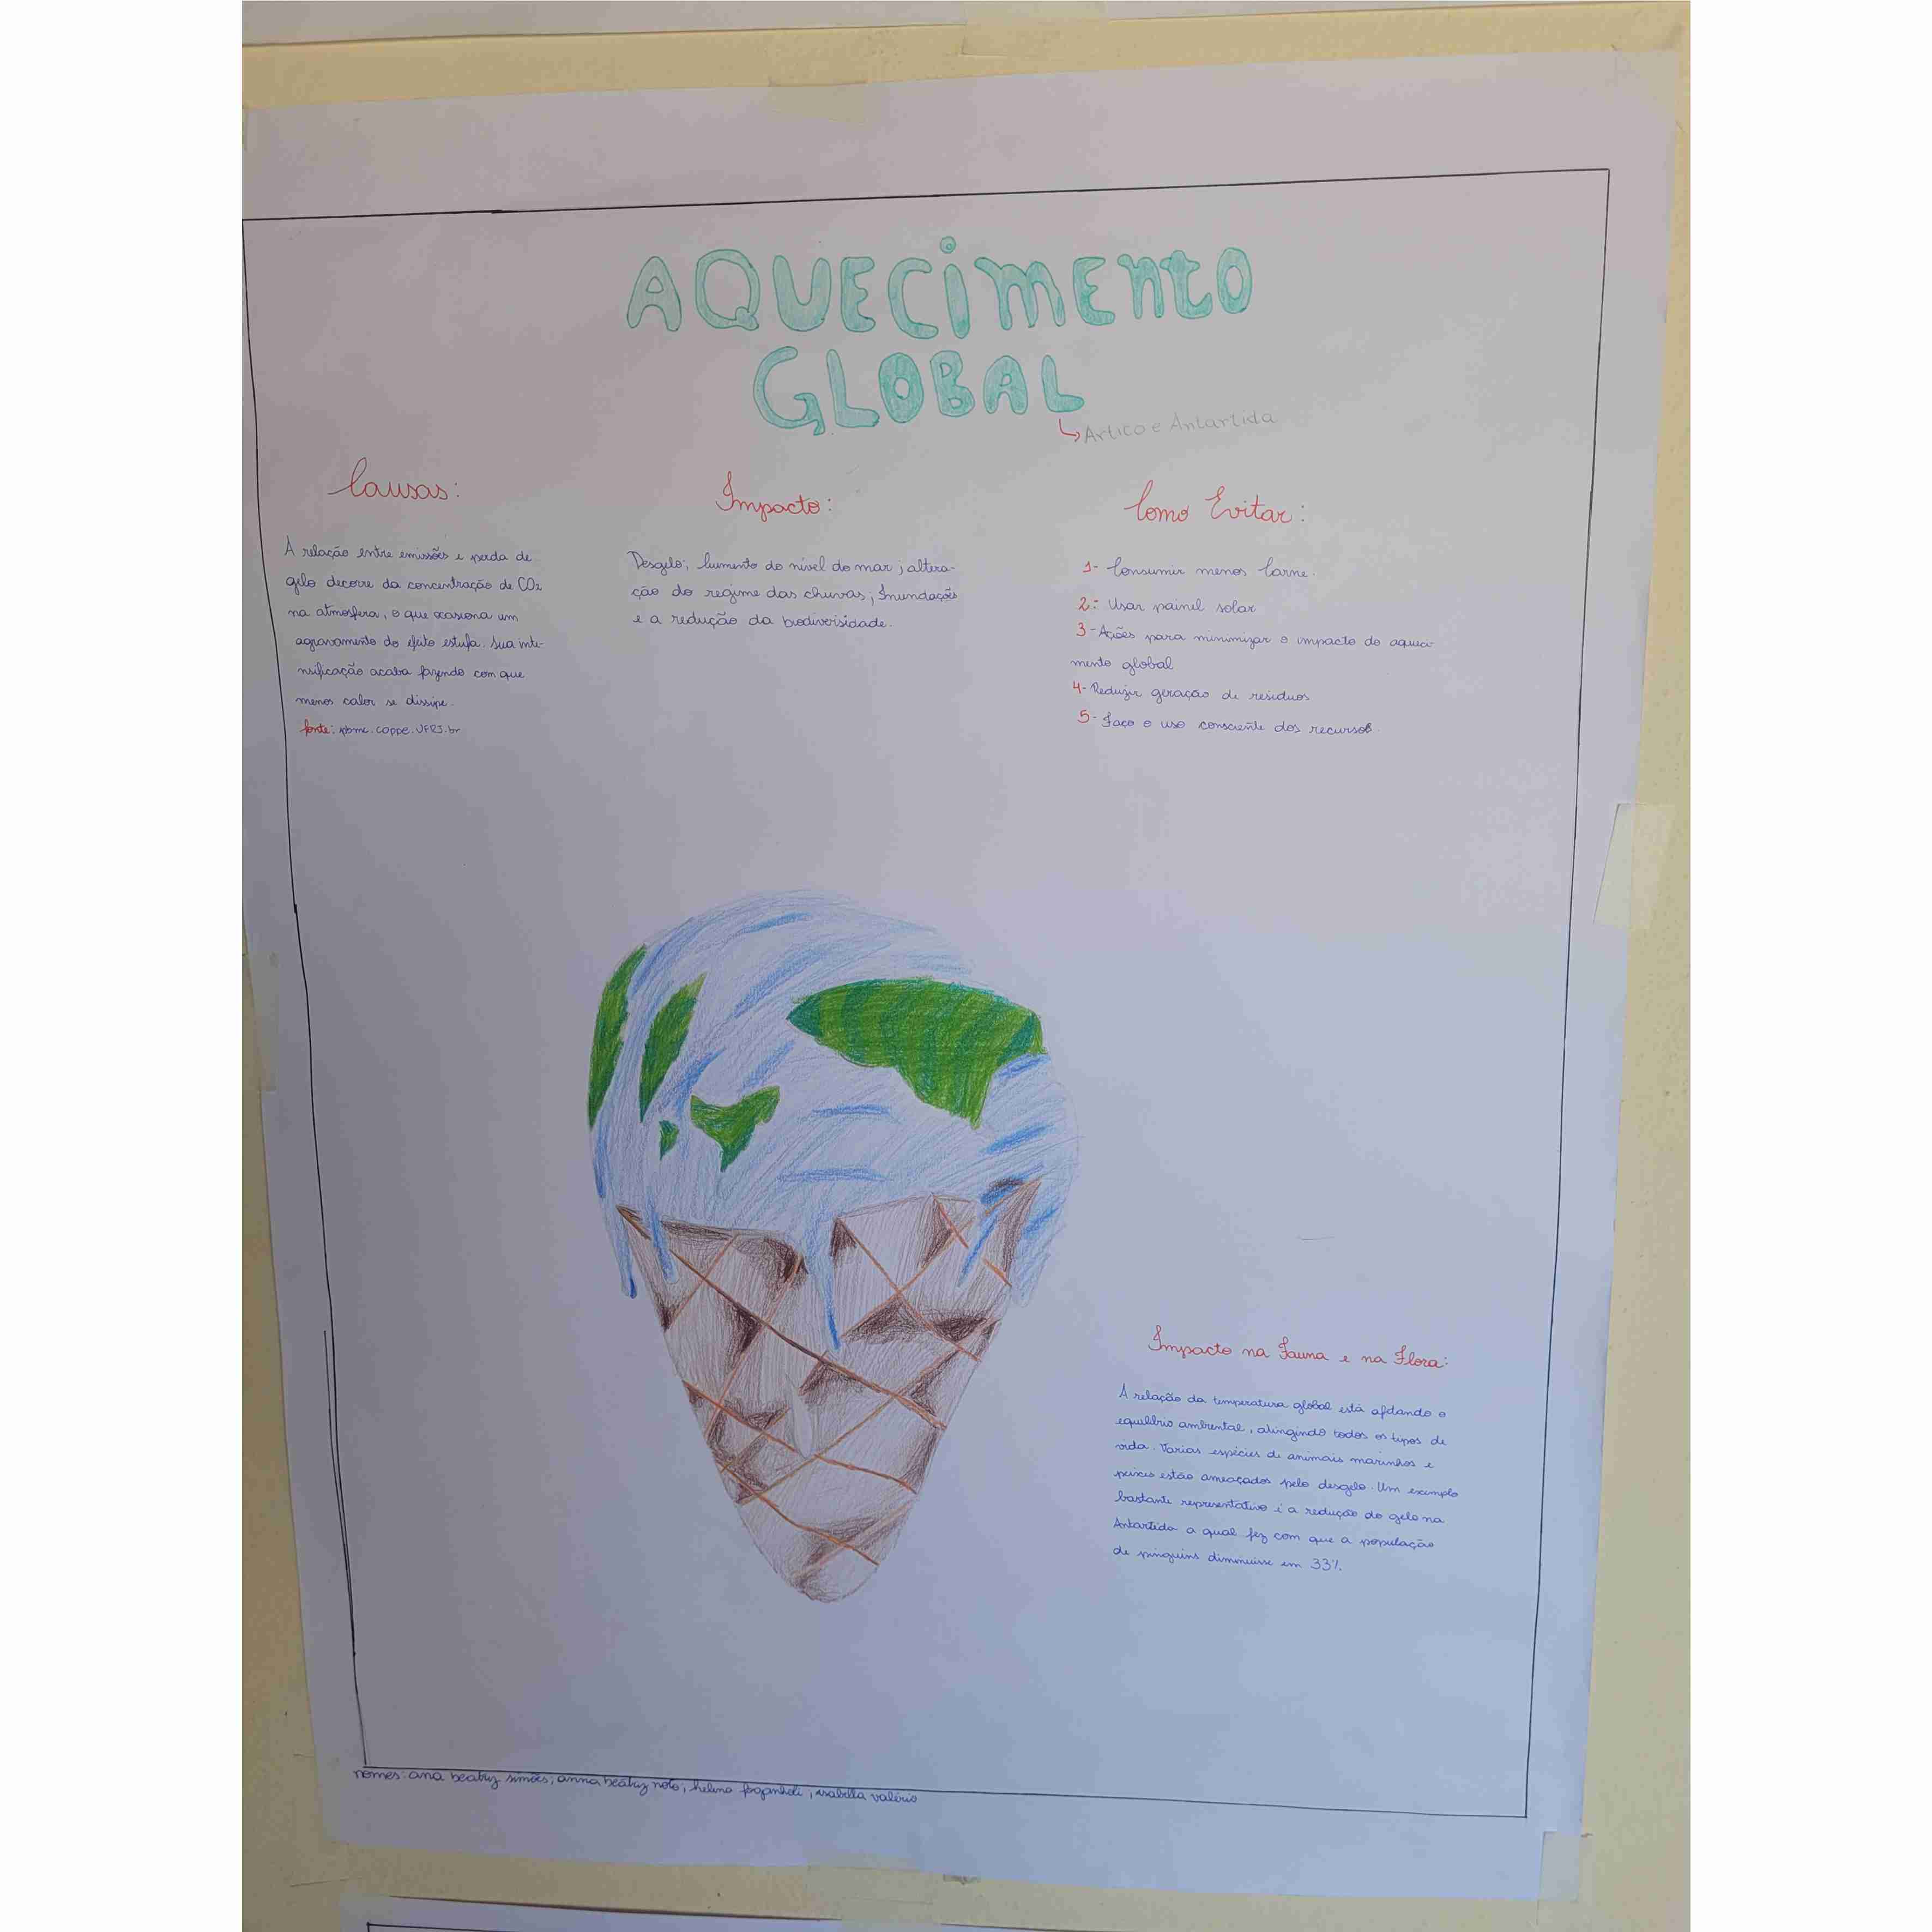 AQUECimEntO
GLOBAL
Artico e Antartida
Causas:
A relação entre emissões e perda de
gelo decorre da concentração de CO2
na atmosfera, o que ocasiona um
agravamento do efeito estufa. Sua inte-
nsificação acaba fazendo com que
menos calor se dissipe.
fonte: pbmc.coppe.UFRJ.br
Impacto:
Desgelo; Aumento do nível do mar; altera-
ção do regime das chuvas; Inundações
e a redução da biodiversidade.
Como Evitar:
1- Consumir menos Carne.
2- Usar painel solar
3- Ações para minimizar o impacto do aqueci-
mento global
4- Reduzir geração de resíduos
5- Faça o uso consciente dos recursos.
Impacto na Fauna e na Flora:
A relação da temperatura global está afetando o
equilíbrio ambiental, atingindo todos os tipos de
vida. Varias espécies de animais marinhos e
peixes estão ameaçados pelo desgelo. Um exemplo
bastante representativo é a redução do gelo na
Antartida a qual fez com que a população
de pinguins diminuisse em 33%.
nomes: ana beatriz simões; anna beatriz neto; helena ; isabella valério